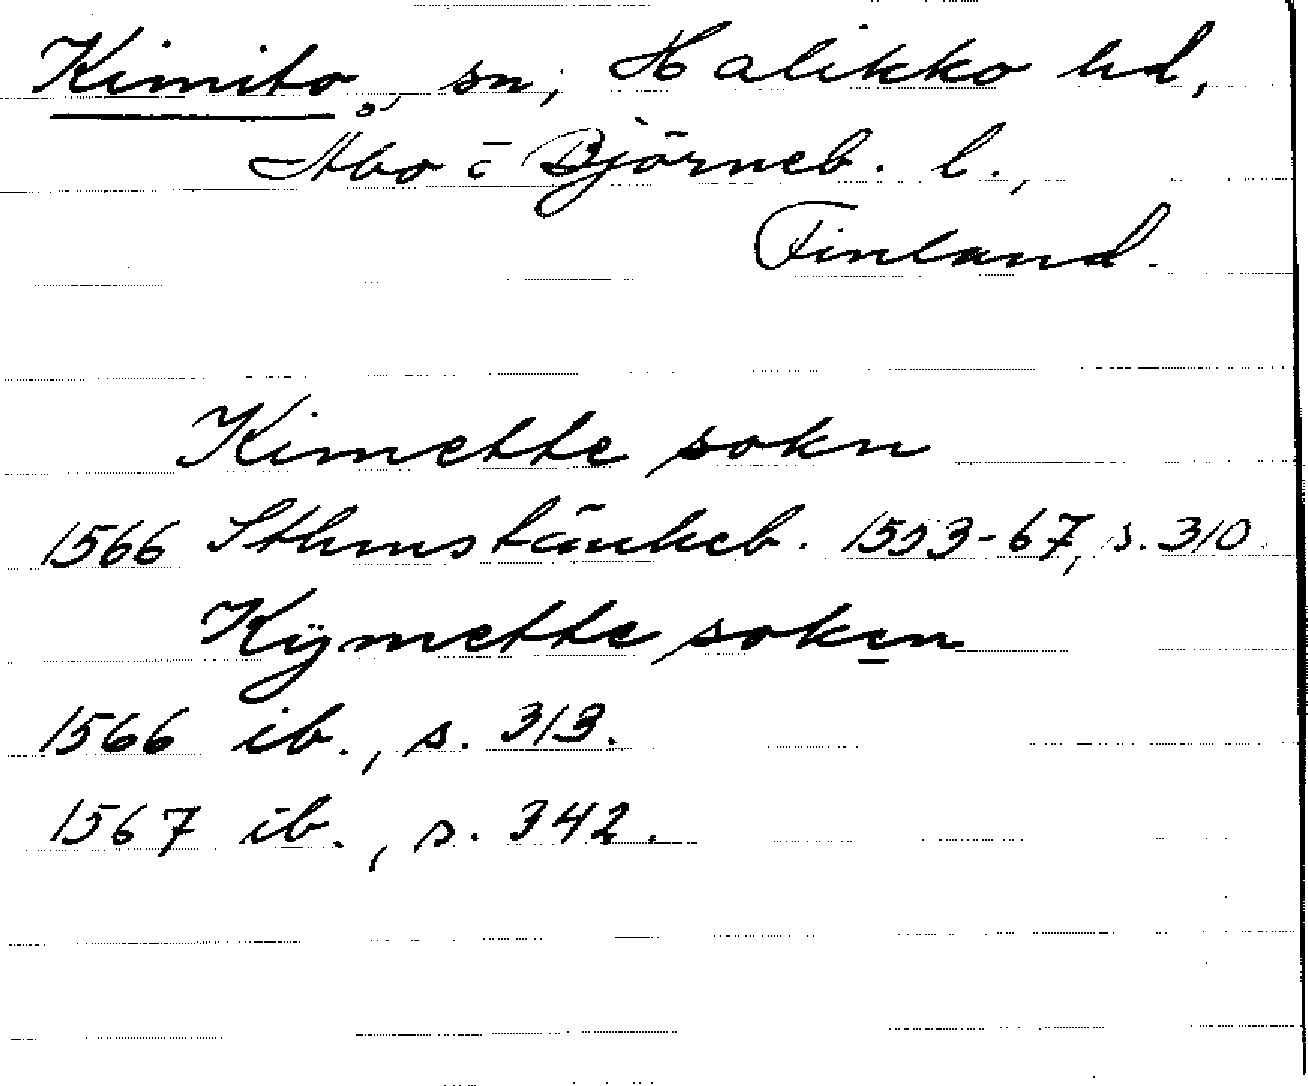 Kimito, sn, Halikko hd,
Åbo o Björneb. l.,
Finland.
Kimette sokn
1566 Sthmstänkeb. 1553-67, s. 310.
Kÿmette soken
1566 ib., s. 313.
1567 ib., s. 342.